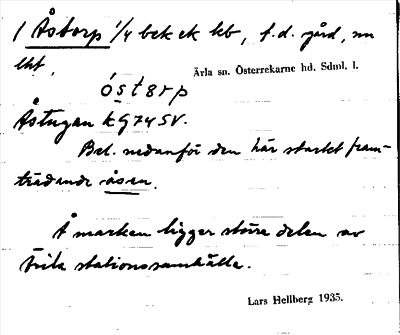 1 Åstorp 1/4 bek ek kb, f.d. gård, nu
lht,
Ärla sn. Österrekarne hd. Sdml. l.
óstərp
Åstugan kG74 SV.
Bel. nedanför den här starkt fram-
trädande åsen.
Å marken ligger större delen av
Ärila stationssamhälle.
Lars Hellberg 1935.